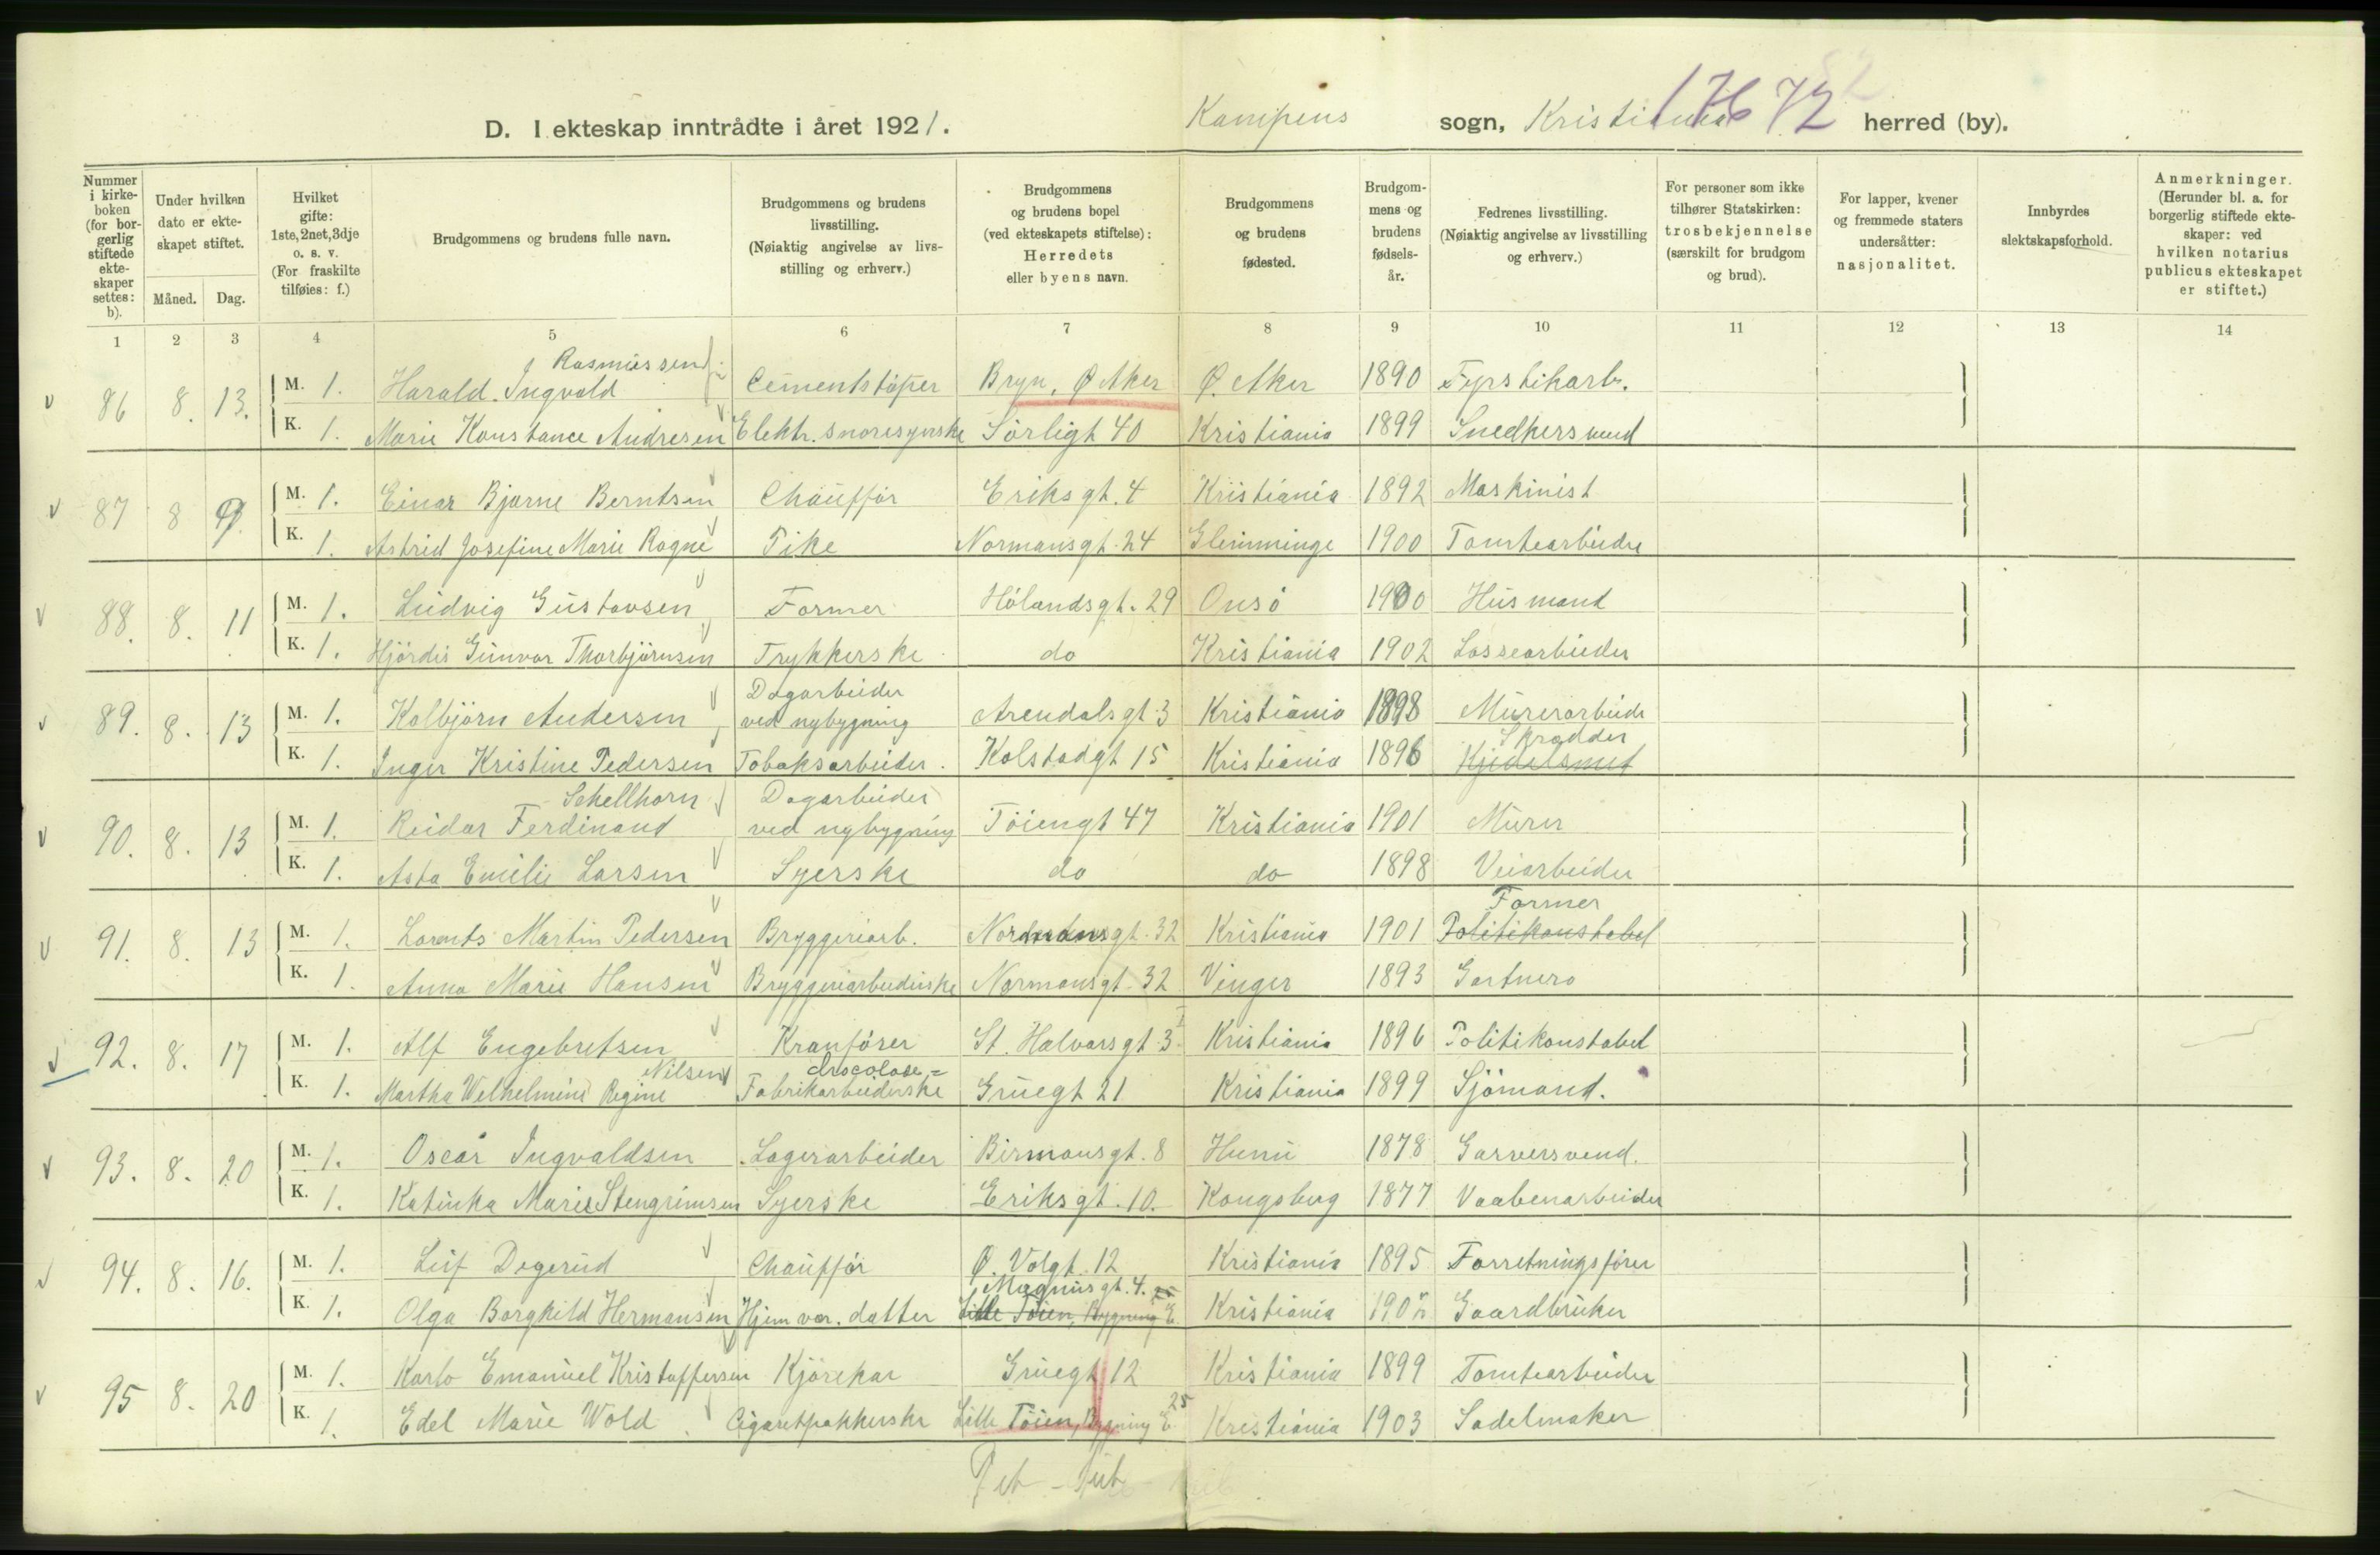 D. I ekteskap inntrådte i året 1921. Kampens sogn, Kristiania 17672 herred (by).
Nummer i kirkeboken (for borgerlig stiftede ekteskaper settes: b).
Under hvilken dato er ekteskapet stiftet.
Måned. Dag.
Hvilket gifte: 1ste, 2net, 3dje o. s. v. (For fraskilte tilføies: f.)
Brudgommens og brudens fulle navn.
Brudgommens og brudens livsstilling. (Nøiaktig angivelse av livsstilling og erhverv.)
Brudgommens og brudens bopel (ved ekteskapets stiftelse): Herredets eller byens navn.
Brudgommens og brudens fødested.
Brudgommens og brudens fødselsår.
Fedrenes livsstilling. (Nøiaktig angivelse av livsstilling og erhverv.)
For personer som ikke tilhører Statskirken: trosbekjennelse (særskilt for brudgom og brud).
For lapper, kvener og fremmede staters undersåtter: nasjonalitet.
Innbyrdes slektskapsforhold.
Anmerkninger. (Herunder bl. a. for borgerlig stiftede ekteskaper: ved hvilken notarius publicus ekteskapet er stiftet.)
1 2 3 4 5 6 7 8 9 10 11 12 13 14
86 8. 13. M. 1. Harald Ingvald Rasmussen Cementstøper Bryn, Ø Aker Ø. Aker 1890 Fyrstikarb.
K. 1. Marie Konstance Andresen Elektr. snorespinske Sørligt 40 Kristiania 1899 Snedkersvend
87 8 9. M. 1. Einar Bjarne Berntsen Chauffør Eriksgt. 4 Kristiania 1892 Maskinist
K. 1. Astrid Josefine Marie Rogne Pike Normansgt. 24 Glemminge 1900 Tomtearbeider
88. 8. 11 M. 1. Ludvig Gustavsen Former Hølandsgt. 29 Onsö 1900 Husmand
K. 1. Hjördis Gunvor Thorbjörnsen Trykkerske do Kristiania 1902 Lossearbeider
89. 8. 13 M. 1. Kolbjörn Andersen Dagarbeider ved nybygning Arendalsgt 3 Kristiania 1898 Murerarbeide
K. 1. Inger Kristine Pedersen Tobaksarbeider. Kolstadgt 15 Kristiania 1896 Kjedelsmed Skrædder
90. 8. 13 M. 1. Reidar Ferdinand Schellhorn Dagarbeider ved nybygning Töiengt 47 Kristiania 1901 Murer
K. 1. Asta Emilie Larsen Syerske do do 1898 Veiarbeider
91. 8. 13 M. 1. Lorents Martin Pedersen Bryggeriarb. Normansgt. 32 Kristiania 1901 Politikonstabel Former
K. 1. Anna Marie Hansen Bryggeriarbeiderske Normansgt. 32 Vinger 1893 Gartnero
92. 8. 17 M. 1. Alf Engebretsen Kranförer St. Halvarsgt. 3 I Kristiania 1896 Politikonstabel
K. 1. Martha Welhelmine Regine Nilsen Chocolade= Fabrikarbeiderske Gruegt 21 Kristiania 1899 Sjömand.
93. 8. 20 M. 1. Oscar Ingvaldsen Lagerarbeider Birmansgt. 8 Hurum 1878 Garversvend.
K. 1. Katinka Marie Stengrimsen Syerske Eriksgt. 10. Kongsberg 1877 Vaabenarbeider
94. 8. 16. M. 1. Leif Degerud Chauffør Ø. Volgt. 12 Kristiania 1895 Forretningsfører
K. 1. Olga Borghild Hermansen Hjem vær. datter Lille Töien, Bygning E. 25 Magnusgt. 4. Kristiania 190 Gaardbruker
95 8. 20 M. 1. Karlo Emanuel Kristoffersen Kjørekar Gruegt 12 Kristiania 1899 Tomtearbeider
K. 1. Edel Marie Wold Cigaretpakkerske Lille Töien, Bygning E. 25 Kristiania 1903 Sadelmaker